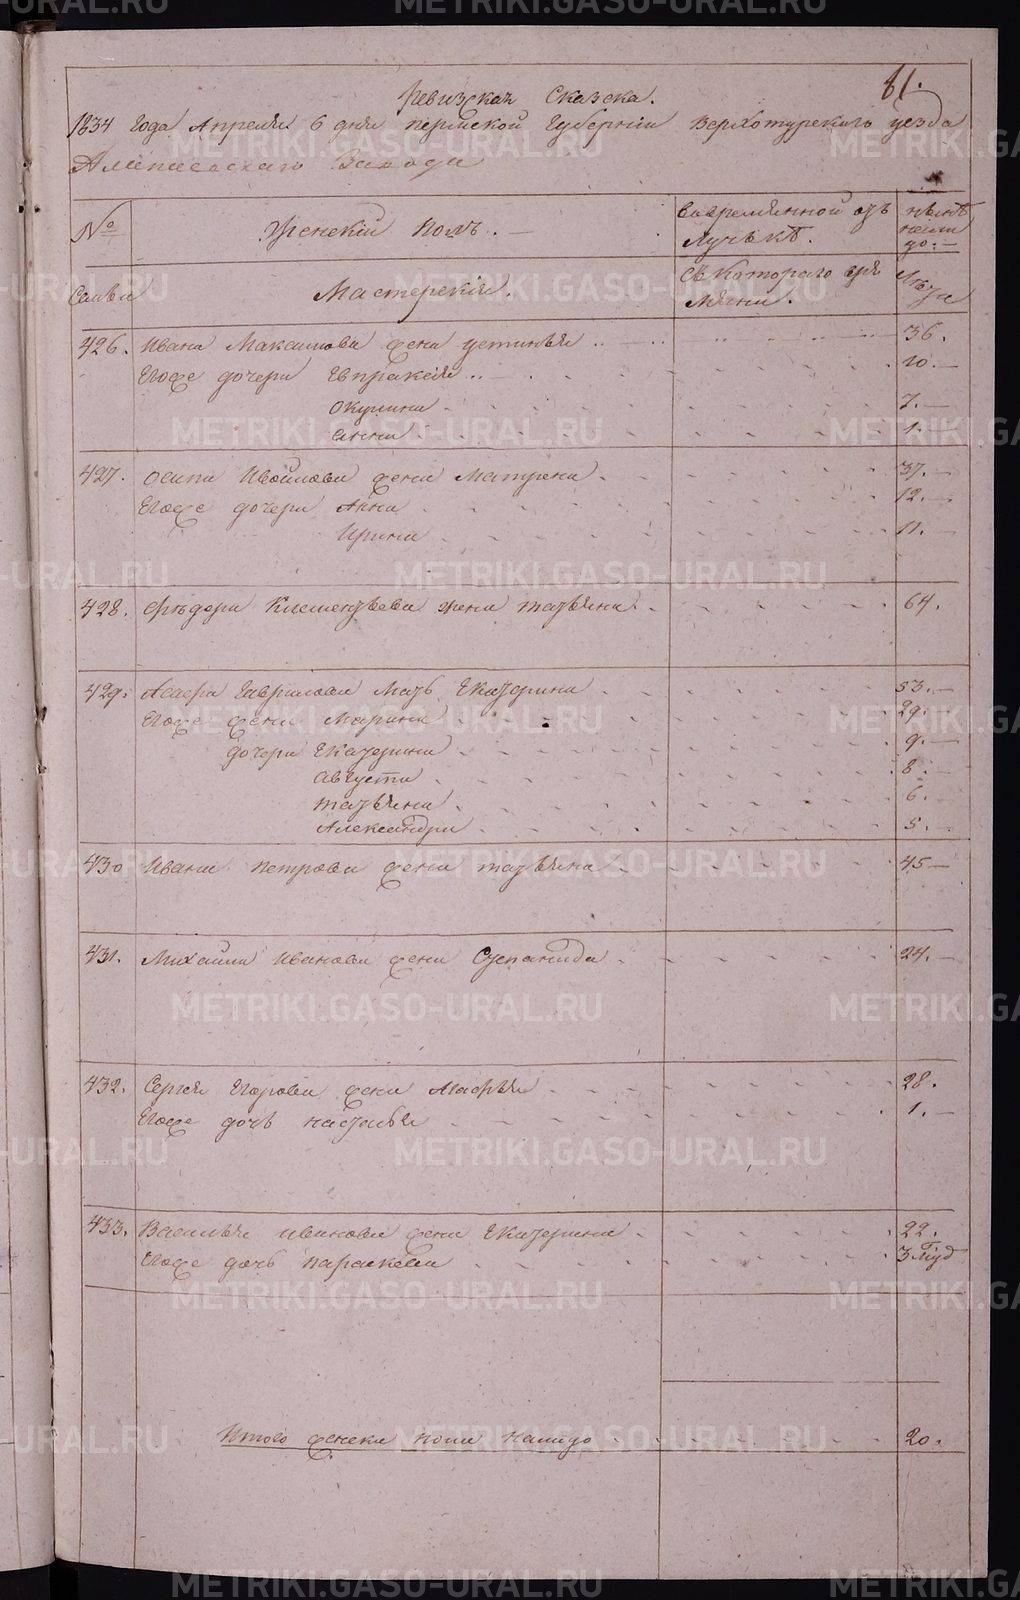 81.
Ревизская Сказка.
1834 года Апреля 6 дня Пермской Губернiи Верхотурскаго уезда
Алапаевскаго Завода
№ Женскiй полъ. Вовременной отлучьке. Ныне налицо.
Семьи Мастерскiя. Съ котораго время Лета
426. Ивана Максимова жена Устинья 36.
Егоже дочери Евпраксiя 10.
Окулина 7.
Анна 1.
427. Осипа Ивойлова жена Матрена 37.
Егоже дочери Анна 12.
Ирина 11.
428. Федора Клементьева жена Татьяна 64.
429. Гаврилова мать Екатерина 53.
Егоже жена Марина 29.
дочери Екатерина 9.
Августа 8.
Татьяна 6.
Александра 5.
430 Ивана Петрова жена Татьяна 45
431. Михаила Иванова жена Степанида 24.
432. Сергея Егорова жена Агафья 28.
Егоже дочь Насталья 1.
433. Василья Иванова жена Екатерина 22.
Егоже дочь Параскева 3
Итого женска пола налицо 20.
METRIKI.GASO-URAL.RU